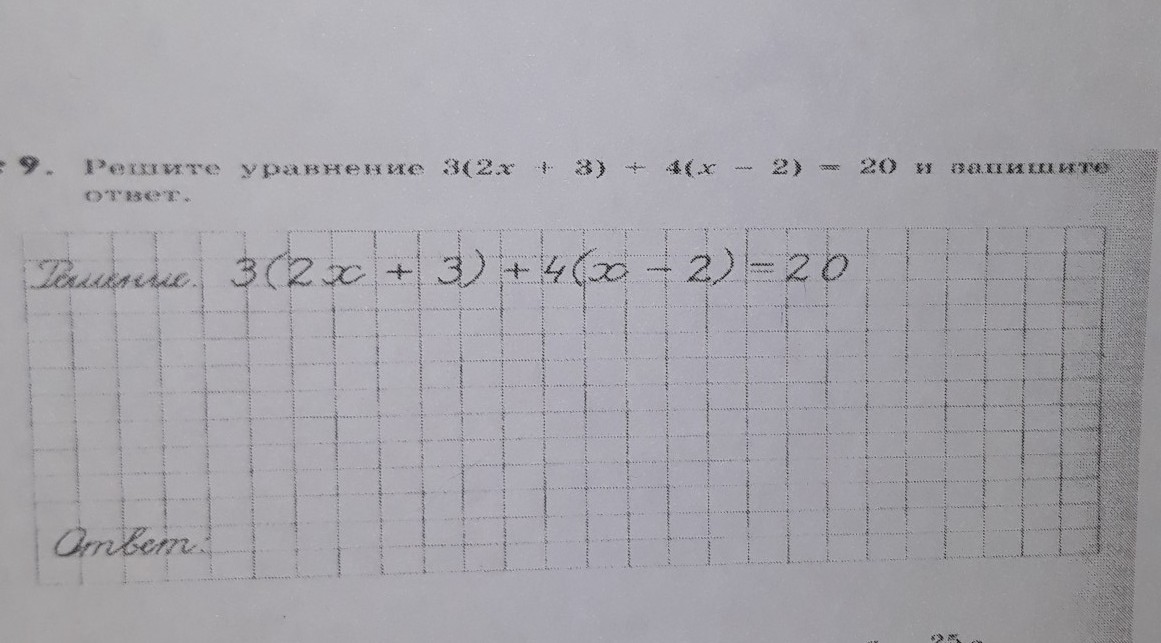 9. Решите уравнение 3(2x + 3) + 4(x − 2) = 20 и запишите
ответ.
Решение. 3(2x + 3) + 4(x − 2) = 20
Ответ: